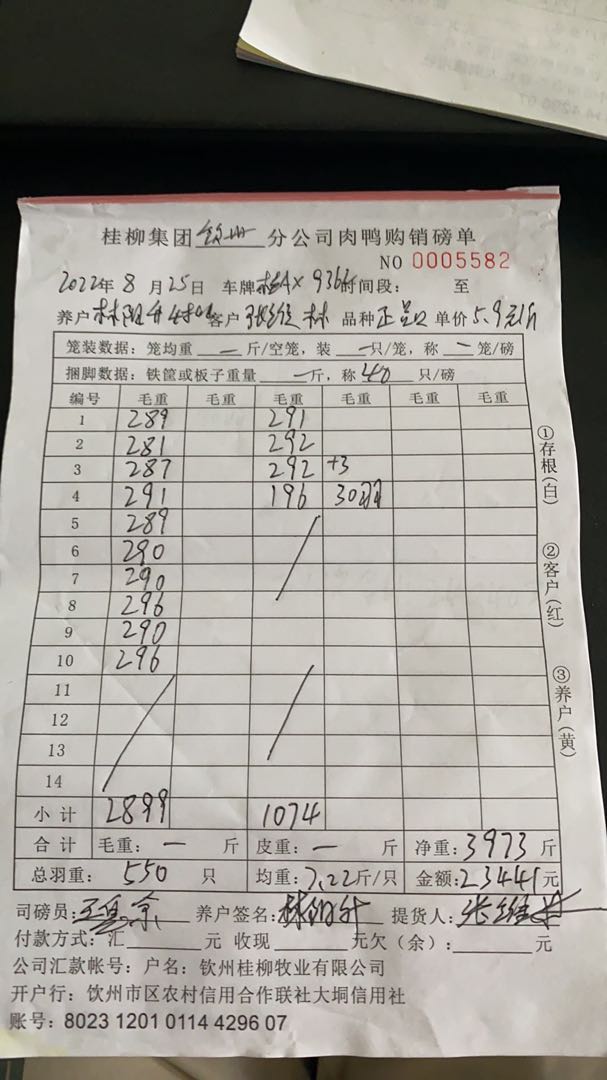 桂柳集团 钦州 分公司肉鸭购销磅单
NO 0005582
2022年 8 月 25日 车牌 A× 936 时间段: 至
养户 林阳升 客户 林 品种 正品 单价 5.9元/斤
笼装数据: 笼均重 — 斤/空笼, 装 — 只/笼, 称 — 笼/磅
捆脚数据: 铁筐或板子重量 — 斤, 称 40 只/磅
编号 毛重 毛重 毛重 毛重 毛重 毛重
1 289 291
2 281 292
3 287 292 +3
4 291 196 30羽
5 289
6 290
7 290
8 296
9 290
10 296
11
12
13
14
小计 2899 1074
合计 毛重: — 斤 皮重: — 斤 净重: 3973 斤
总羽重: 550 只 均重: 7.22斤/只 金额: 23441元
司磅员: 养户签名: 林阳升 提货人: 张维
付款方式: 汇 元 收现 元欠(余): 元
公司汇款帐号: 户名: 钦州桂柳牧业有限公司
开户行: 钦州市区农村信用合作联社大垌信用社
账号: 8023 1201 0114 4296 07
①存根(白)
②客户(红)
③养户(黄)
4 4290 07